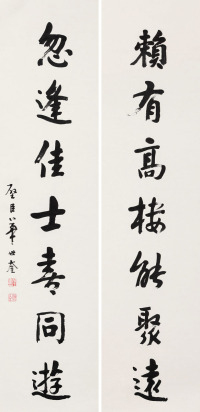 賴有高樓能聚遠
忽逢佳士喜同遊